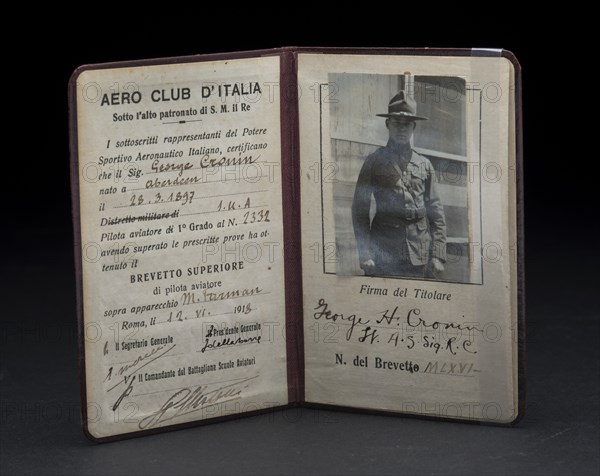 AERO CLUB D'ITALIA
Sotto l'alto patronato di S. M. il Re
I sottoscritti rappresentanti del Potere
Sportivo Aeronautico Italiano, certificano
che il Sig. George Cronin
nato a aberdeen
il 28.3.1897
Distretto militare di
Pilota aviatore di 1º Grado al N. 2332
avendo superato le prescritte prove ha ot-
tenuto il
BREVETTO SUPERIORE
di pilota aviatore
sopra apparecchio M. Farman
Roma, li 12. VI. 1918
Il Segretario Generale
Il Presidente Generale
Il Comandante del Battaglione Scuole Aviatori
Firma del Titolare
George H. Cronin
N. del Brevetto MLXVI